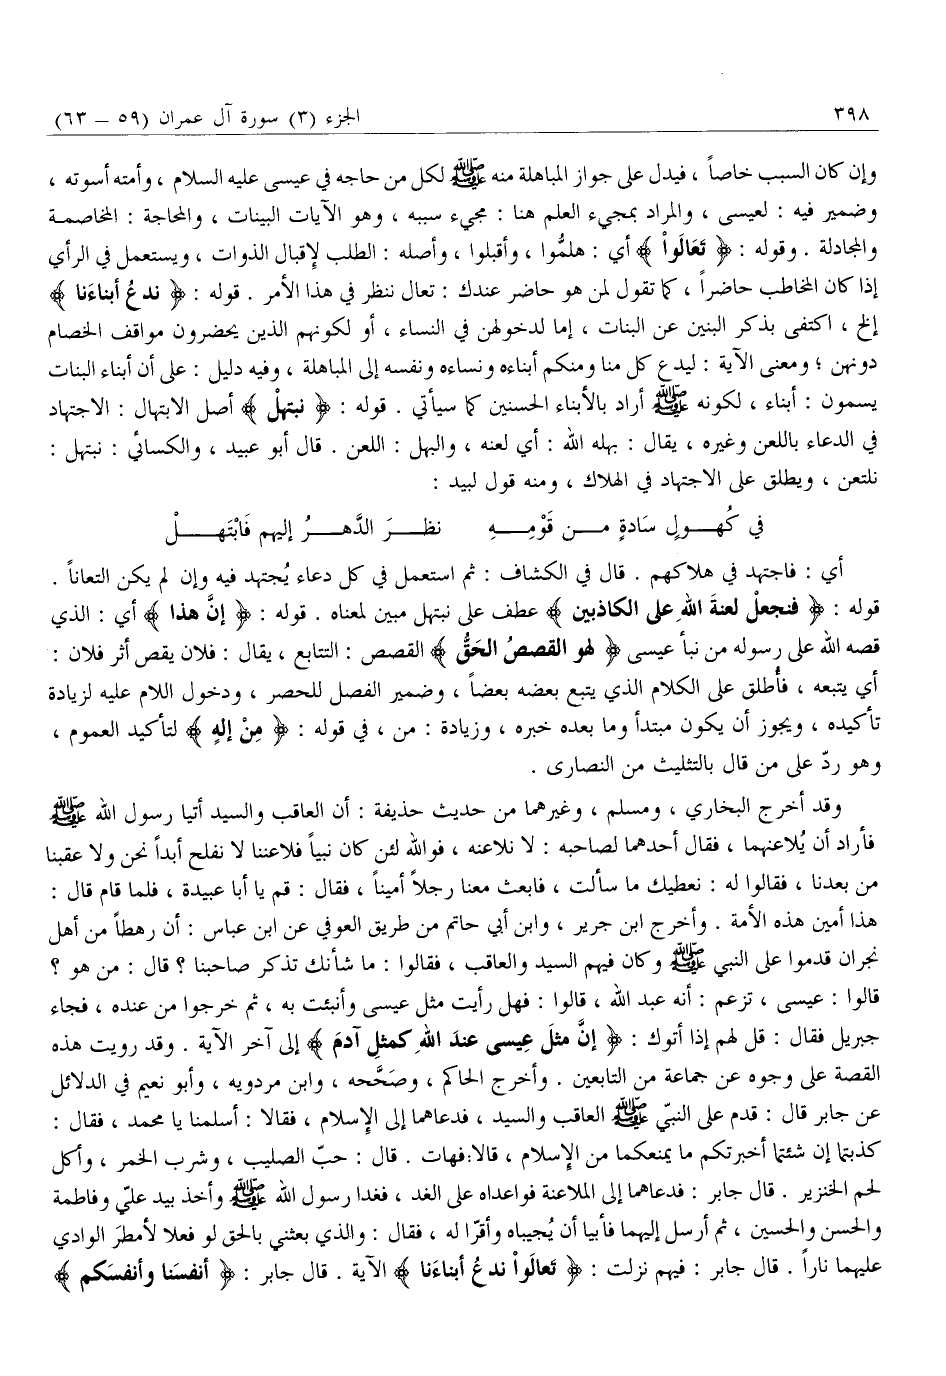 ٣٩٨ الجزء (٣) سورة آل عمران (٥٩ – ٦٣)
وإن كان السبب خاصاً ، فيدل على جواز المباهلة منه ﷺ لكل من حاجه في عيسى عليه السلام ، وأمته أسوته ،
وضمير فيه : لعيسى ، والمراد بمجيء العلم هنا : مجيء سببه ، وهو الآيات البينات ، والمحاجة : المخاصمة
والمجادلة . وقوله : ﴿ تَعَالَواْ ﴾ أي : هلمُّوا ، وأقبلوا ، وأصله : الطلب لإقبال الذوات ، ويستعمل في الرأي
إذا كان المخاطب حاضراً ، كما تقول لمن هو حاضر عندك : تعال ننظر في هذا الأمر . قوله : ﴿ ندعُ أبناءَنا ﴾
إلخ ، اكتفى بذكر البنين عن البنات ، إما لدخولهن في النساء ، أو لكونهم الذين يحضرون مواقف الخصام
دونهن ؛ ومعنى الآية : ليدع كل منا ومنكم أبناءه ونساءه ونفسه إلى المباهلة ، وفيه دليل : على أن أبناء البنات
يسمون : أبناء ، لكونه ﷺ أراد بالأبناء الحسنين كما سيأتي . قوله : ﴿ نبتهلْ ﴾ أصل الابتهال : الاجتهاد
في الدعاء باللعن وغيره ، يقال : بهله الله : أي لعنه ، والبهل : اللعن . قال أبو عبيد ، والكسائي : نبتهل :
نلتعن ، ويطلق على الاجتهاد في الهلاك ، ومنه قول لبيد :
في كُهـولٍ سَادةٍ مـن قَوْمِـهِ نظـرَ الدَّهـرُ إليهم فَابْتَهـلْ
أي : فاجتهد في هلاكهم . قال في الكشاف : ثم استعمل في كل دعاء يُجتهد فيه وإن لم يكن التعاناً .
قوله : ﴿ فنجعلْ لعنةَ اللهِ على الكاذبين ﴾ عطف على نبتهل مبين لمعناه . قوله : ﴿ إنَّ هذا ﴾ أي : الذي
قصه الله على رسوله من نبأ عيسى ﴿ لهو القصصُ الحَقُّ ﴾ القصص : التتابع ، يقال : فلان يقص أثر فلان :
أي يتبعه ، فأُطلق على الكلام الذي يتبع بعضه بعضاً ، وضمير الفصل للحصر ، ودخول اللام عليه لزيادة
تأكيده ، ويجوز أن يكون مبتدأ وما بعده خبره ، وزيادة : من ، في قوله : ﴿ مِنْ إلهٍ ﴾ لتأكيد العموم ،
وهو ردّ على من قال بالتثليث من النصارى .
وقد أخرج البخاري ، ومسلم ، وغيرهما من حديث حذيفة : أن العاقب والسيد أتيا رسول الله ﷺ
فأراد أن يُلاعنهما ، فقال أحدهما لصاحبه : لا نلاعنه ، فوالله لئن كان نبياً فلاعننا لا نفلح أبداً نحن ولا عقبنا
من بعدنا ، فقالوا له : نعطيك ما سألت ، فابعث معنا رجلاً أميناً ، فقال : قم يا أبا عبيدة ، فلما قام قال :
هذا أمين هذه الأمة . وأخرج ابن جرير ، وابن أبي حاتم من طريق العوفي عن ابن عباس : أن رهطاً من أهل
نجران قدموا على النبي ﷺ وكان فيهم السيد والعاقب ، فقالوا : ما شأنك تذكر صاحبنا ؟ قال : من هو ؟
قالوا : عيسى ، تزعم : أنه عبد الله ، قالوا : فهل رأيت مثل عيسى وأنبئت به ، ثم خرجوا من عنده ، فجاء
جبريل فقال : قل لهم إذا أتوك : ﴿ إنَّ مثلَ عِيسى عندَ اللهِ كمثلِ آدمَ ﴾ إلى آخر الآية . وقد رويت هذه
القصة على وجوه عن جماعة من التابعين . وأخرج الحاكم ، وصَحَّحه ، وابن مردويه ، وأبو نعيم في الدلائل
عن جابر قال : قدم على النبّي ﷺ العاقب والسيد ، فدعاهما إلى الإسلام ، فقالا : أسلمنا يا محمد ، فقال :
كذبتما إن شئتما أخبرتكم ما يمنعكما من الإسلام ، قالا:فهات . قال : حبّ الصليب ، وشرب الخمر ، وأكل
لحم الخنزير . قال جابر : فدعاهما إلى الملاعنة فواعداه على الغد ، فغدا رسول الله ﷺ وأخذ بيد عليّ وفاطمة
والحسن والحسين ، ثم أرسل إليهما فأبيا أن يُجيباه وأقرّا له ، فقال : والذي بعثني بالحق لو فعلا لأمطرَ الوادي
عليهما ناراً . قال جابر : فيهم نزلت : ﴿ تَعالَواْ ندعُ أبناءَنا ﴾ الآية . قال جابر : ﴿ أنفسَنا وأنفسَكم ﴾